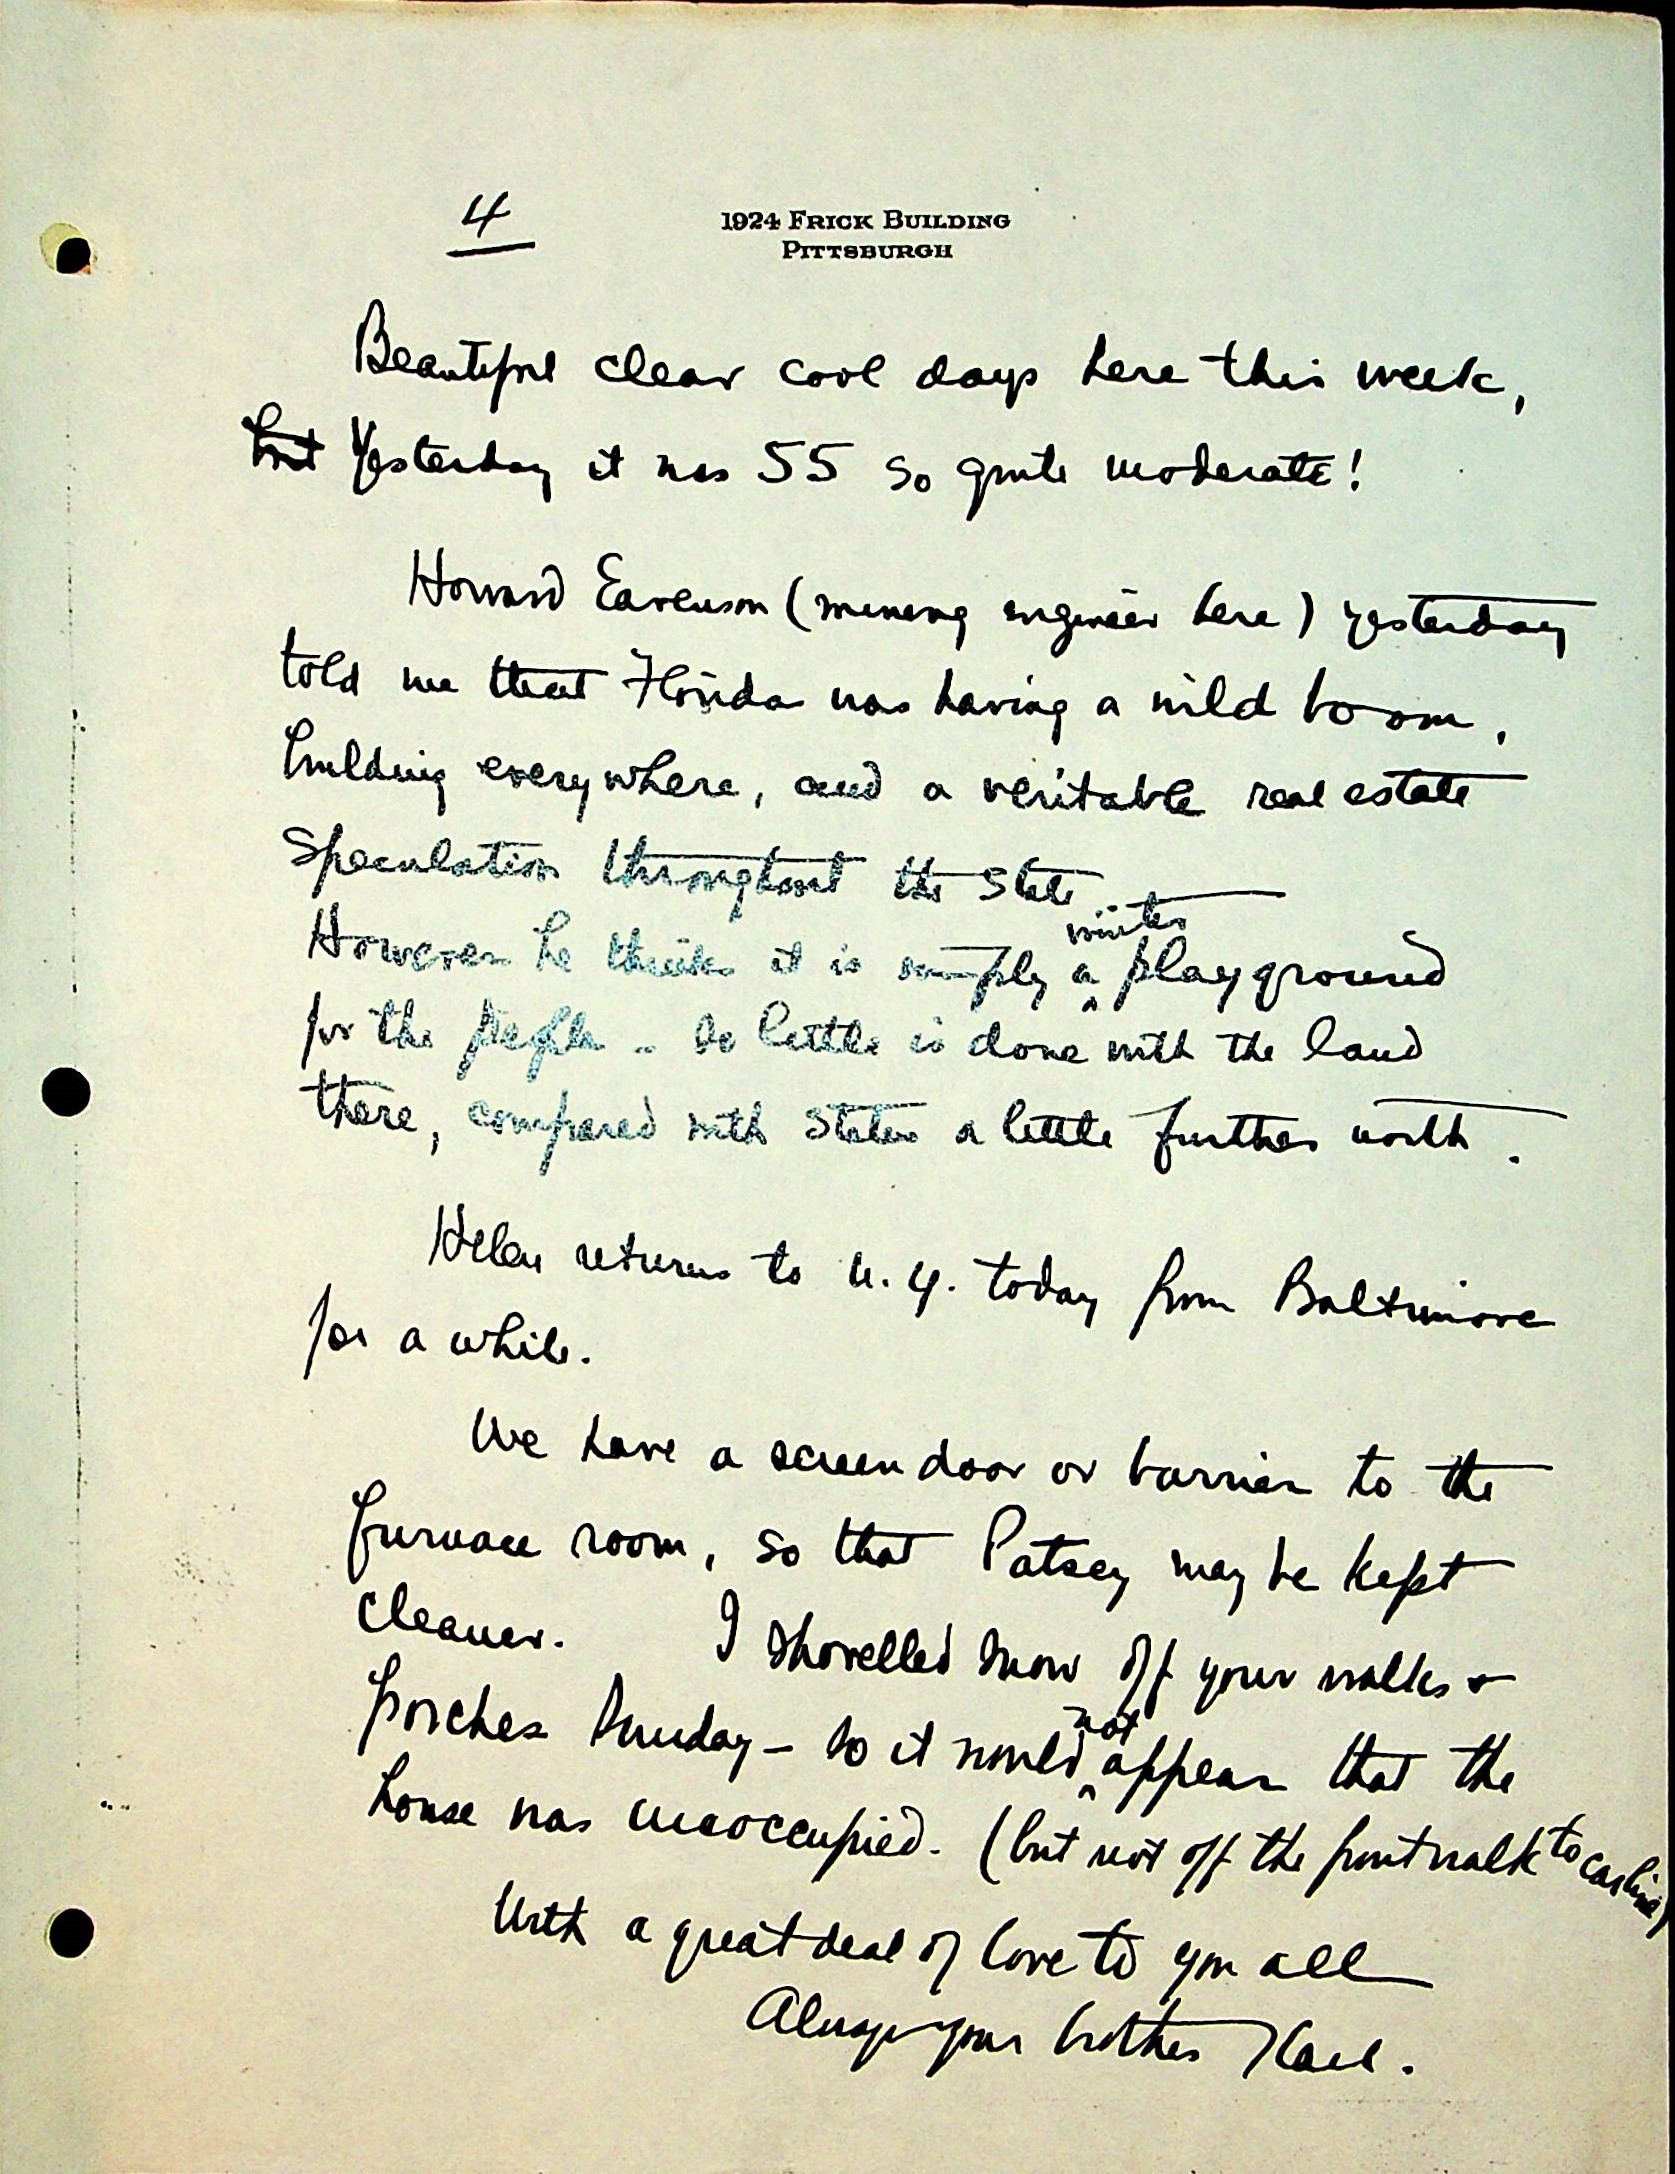 4
1924 FRICK BUILDING
PITTSBURGH
Beautiful clear cool days here this week,
but Yesterday it was 55 so quite moderate!
Howard Eavenson (mining engineer here) yesterday
told me that Florida was having a wild boom,
building everywhere, and a veritable real estate
speculation throughout the state.
winter
However he thinks it is simply a ^ playground
for the people - So little is done with the land
there, compared with states a little further north.
Helen returns to N.Y. today from Baltimore
for a while.
We have a screen door or barrier to the
furnace room, so that Patsey may be kept
cleaner. I shovelled snow off your walks &
not
porches Sunday - so it would ^ appear that the
house was unoccupied. (but not off the front walk to carline)
With a great deal of love to you all
Always your brother Karl.